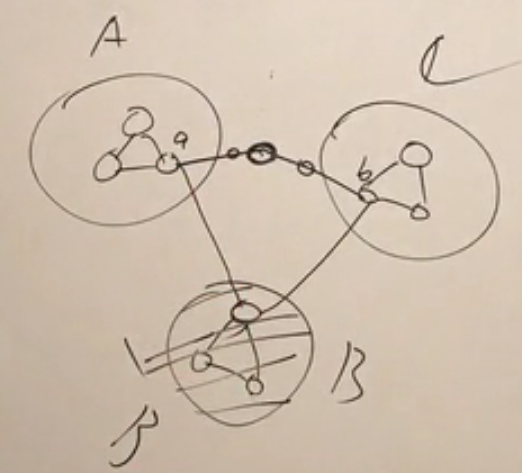 A
C
a
b
B
B